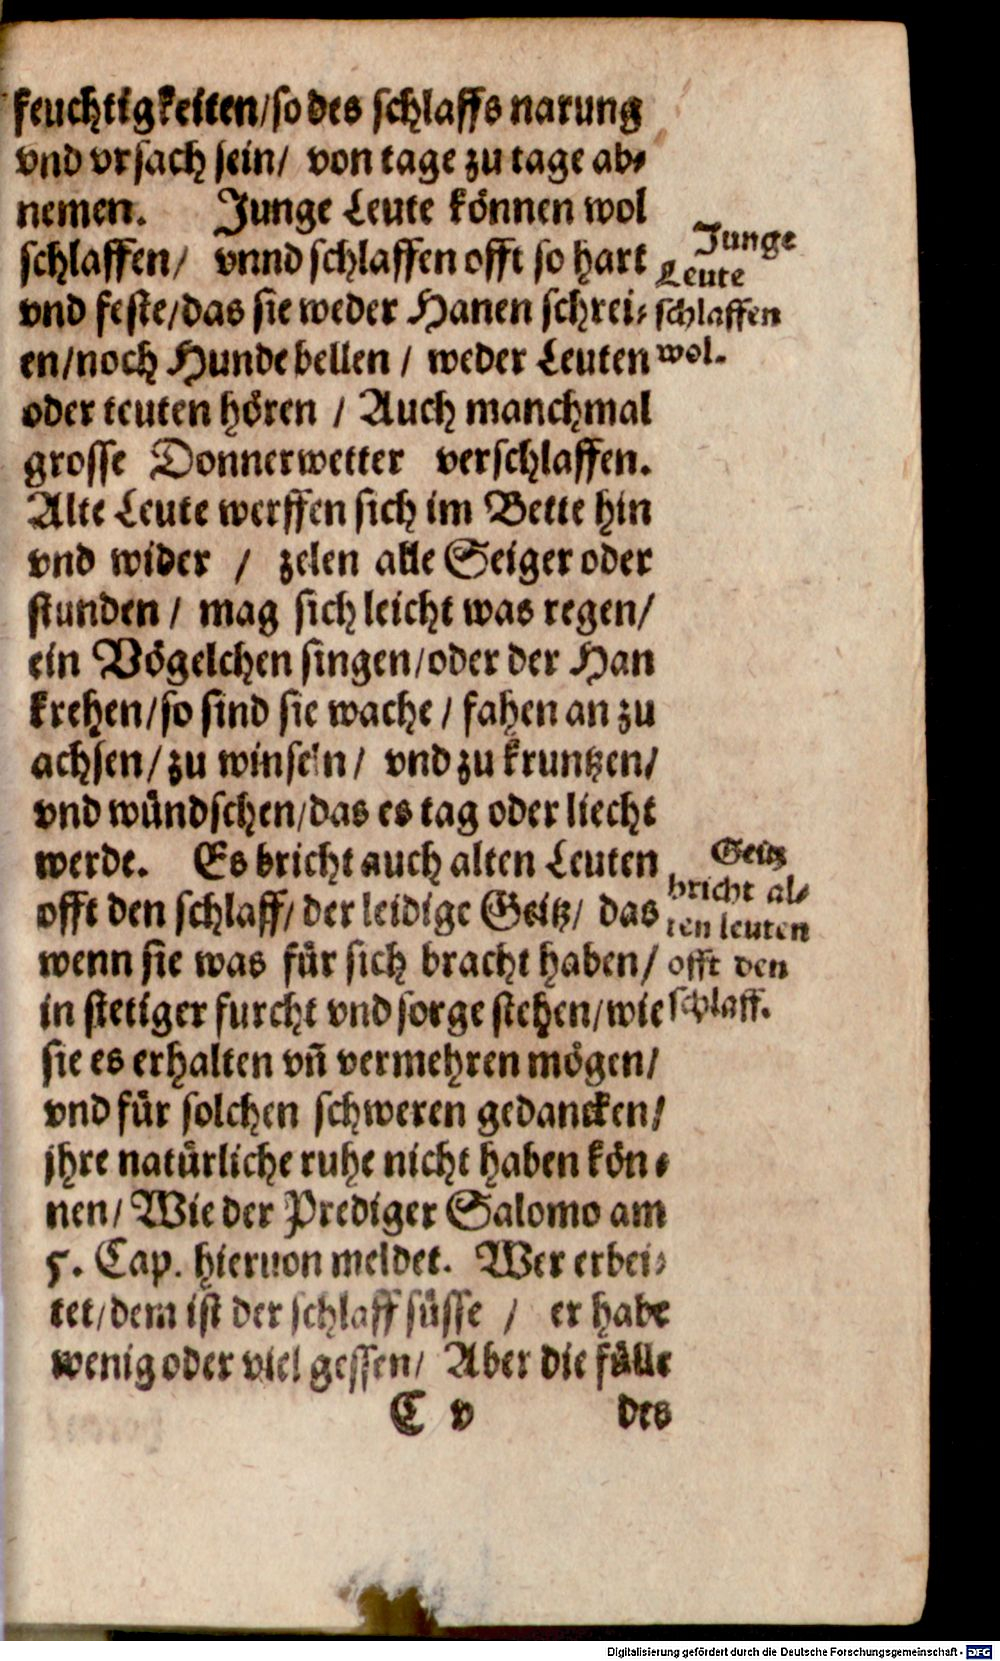 feuchtigkeiten/so des schlaffs narung
vnd vrsach sein/ von tage zu tage ab-
nemen. Junge Leute können wol
schlaffen/ vnnd schlaffen offt so hart
vnd feste/das sie weder Hanen schrei-
en/noch Hunde bellen / weder Leuten
oder teuten hören / Auch manchmal
grosse Donnerwetter verschlaffen.
Alte Leute werffen sich im Bette hin
vnd wider / zelen alle Seiger oder
stunden / mag sich leicht was regen/
ein Vögelchen singen/oder der Han
krehen/so sind sie wache / fahen an zu
achsen/zu winseln/ vnd zu kruntzen/
vnd wündschen/das es tag oder liecht
werde. Es bricht auch alten Leuten
offt den schlaff/ der leidige Geitz/ das
wenn sie was für sich bracht haben/
in stetiger furcht vnd sorge stehen/wie
sie es erhalten vñ vermehren mögen/
vnd für solchen schweren gedancken/
jhre natürliche ruhe nicht haben kön-
nen/ Wie der Prediger Salomo am
5. Cap. hieruon meldet. Wer erbei-
tet/dem ist der schlaff süsse / er habe
wenig oder viel gessen/ Aber die fülle
C v des
Junge
Leute
schlaffen
wol.
Geitz
bricht al-
ten leuten
offt den
schlaff.
Digitalisierung gefördert durch die Deutsche Forschungsgemeinschaft - DFG